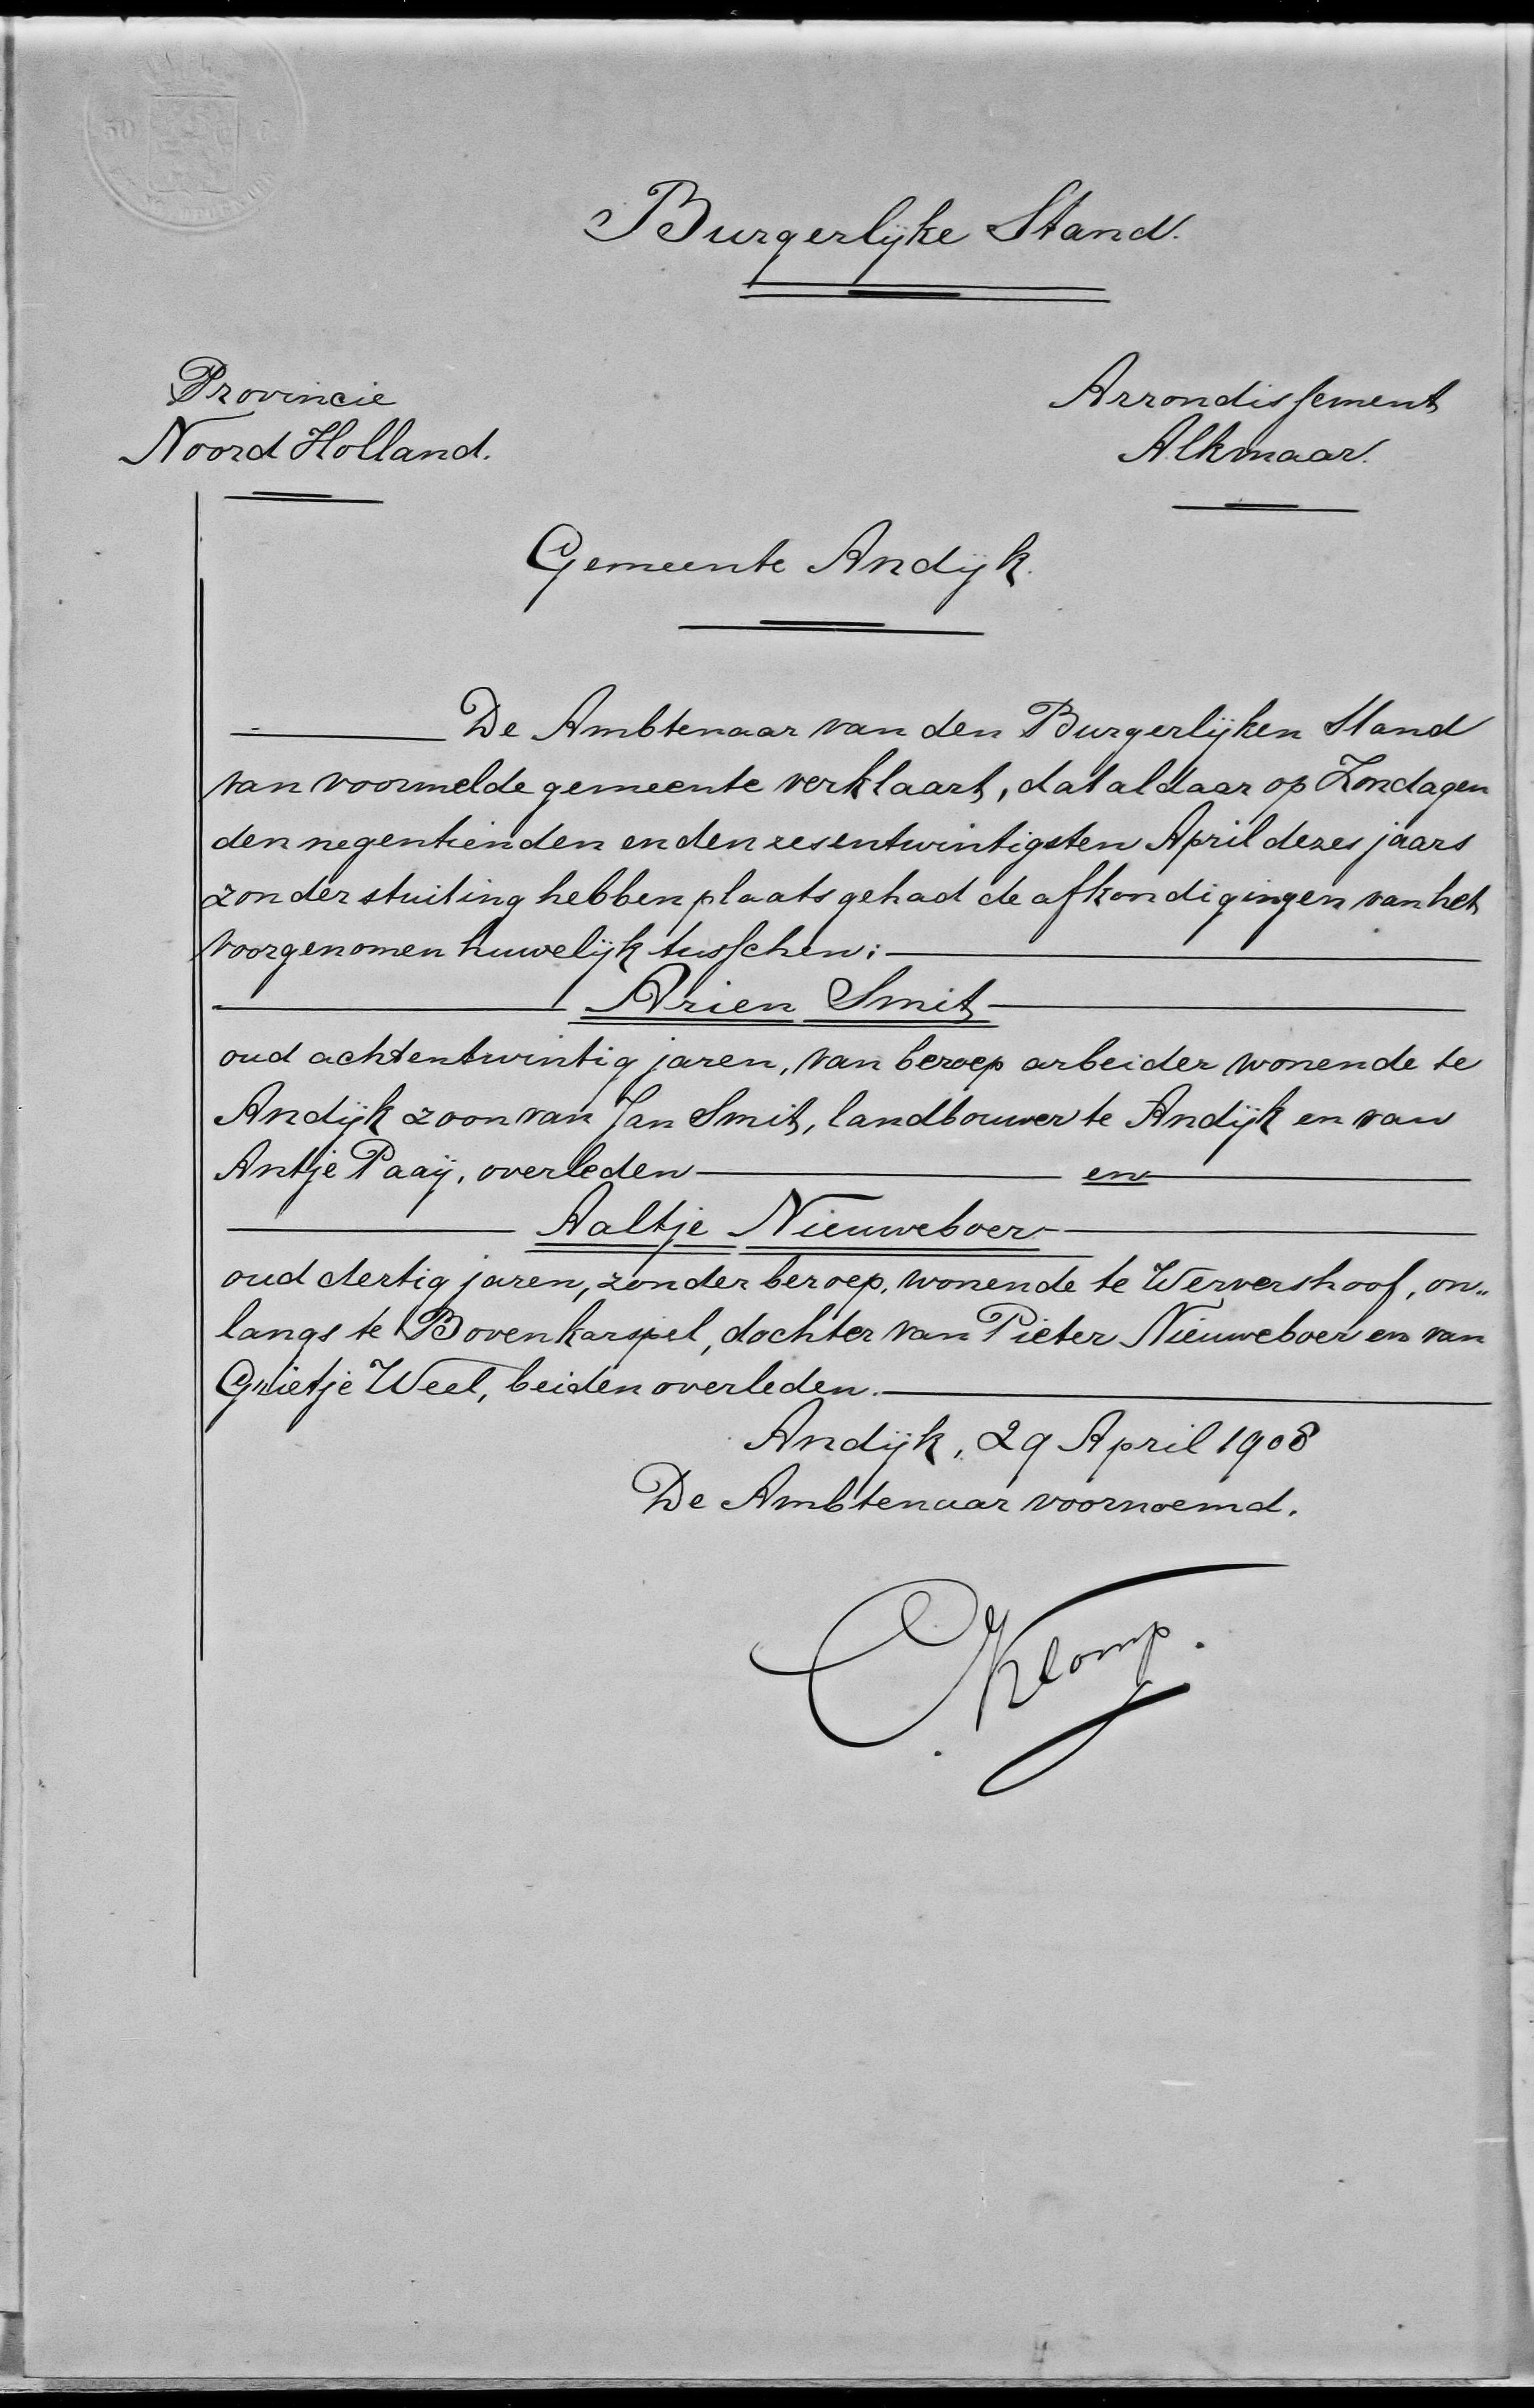 Burgerlijke Stand.
Provincie
Noord Holland.
Arrondissement
Alkmaar.
Gemeente Andijk.
De Ambtenaar van den Burgerlijken Stand
van voormelde gemeente verklaart, dat aldaar op Zondagen
den negentienden en den zesentwintigsten April dezes jaars
zonder stuiting hebben plaats gehad de afkondigingen van het
voorgenomen huwelijk tusschen:
Arien Smit
oud achtentwintig jaren, van beroep arbeider wonende te
Andijk zoon van Jan Smit, landbouwer te Andijk en van
Antje Paaij, overleden en
Aaltje Nieuweboer
oud dertig jaren, zonder beroep, wonende te Wervershoof, on„
langs te Bovenkarspel, dochter van Pieter Nieuweboer en van
Grietje Weel, beiden overleden.
Andijk, 29 April 1908
De Ambtenaar voornoemd.
C. Klomp.